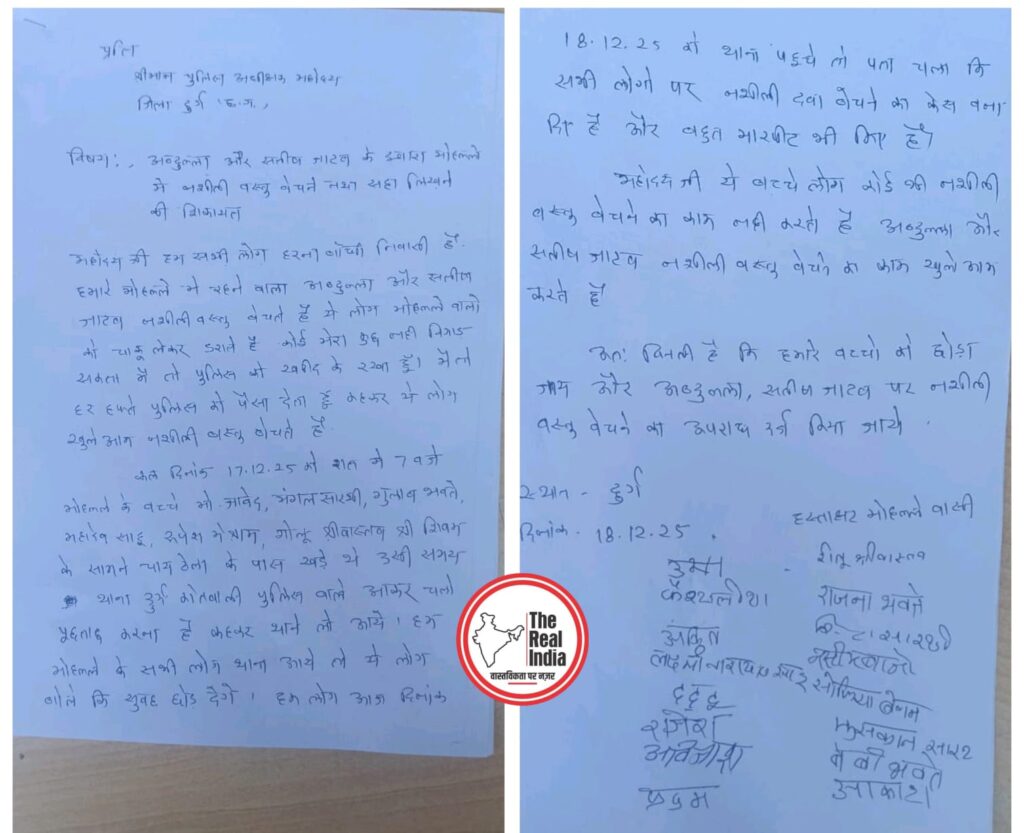 प्रति
श्रीमान पुलिस अधीक्षक महोदय
जिला दुर्ग (छ.ग.)
विषय:, अब्दुल्ला और सतीष जाटव के द्वारा मोहल्ले
में नशीली वस्तु बेचने
की शिकायत
महोदय जी हम सभी लोग हरना बांधा निवासी है.
हमारे मोहल्ले मे रहने वाला अब्दुल्ला और सतीष
जाटव नशीली वस्तु बेचते है ये लोग मोहल्ले वालो
को चाकू लेकर डराते है कोई मेरा कुछ नही बिगाड
सकता मैं तो पुलिस को खरीद के रखा हूँ। मैं तो
हर हफ्ते पुलिस को पैसा देता हूँ कहकर ये लोग
खुले आम नशीली वस्तु बेचते है.
कल दिनांक 17.12.25 को रात मे 7 बजे
मोहल्ले के बच्चे मो. जावेद, मंगल सारथी, गुलाब भवते,
महादेव साहू, रूपेश मेश्राम, गोलू श्रीवास्तव श्री शिवम
के सामने चाय ठेला के पास खड़े थे उसी समय
थाना दुर्ग कोतवाली पुलिस वाले आकर चलो
पुछताछ करना है कहकर थाने ले आये। हम
मोहल्ले के सभी लोग थाना आये तो ये लोग
बोले कि सुबह छोड देंगे। हम लोग आज दिनांक
18.12.25 को थाना पहुचे तो पता चला कि
सभी लोगो पर नशीली दवा बेचने का केस बना
दिए है और बहुत मारपीट भी किए है।
महोदय जी ये बच्चे लोग कोई भी नशीली
वस्तु बेचने का काम नही करते है अब्दुल्ला और
सतीष जाटव नशीली वस्तु बेचने का काम खुले आम
करते है
अतः विनती है कि हमारे बच्चो को छोड़ा
जाय और अब्दुल्ला, सतीष जाटव पर नशीली
वस्तु बेचने का अपराध दर्ज किया जाये.
स्थान - दुर्ग
दिनांक. 18.12.25.
हस्ताक्षर मोहल्ले वासी
रितु श्रीवास्तव
राजना भवते
अंकित
सोफिया बेगम
मुसकान सारथ
दद्दू
राजेश
बेबी भवते
आकाश
The
Real
India
वास्तविकता पर नज़र